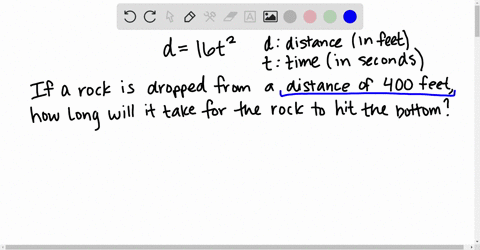 d = 16t² d: distance (in feet)
t: time (in seconds)
If a rock is dropped from a distance of 400 feet,
how long will it take for the rock to hit the bottom?